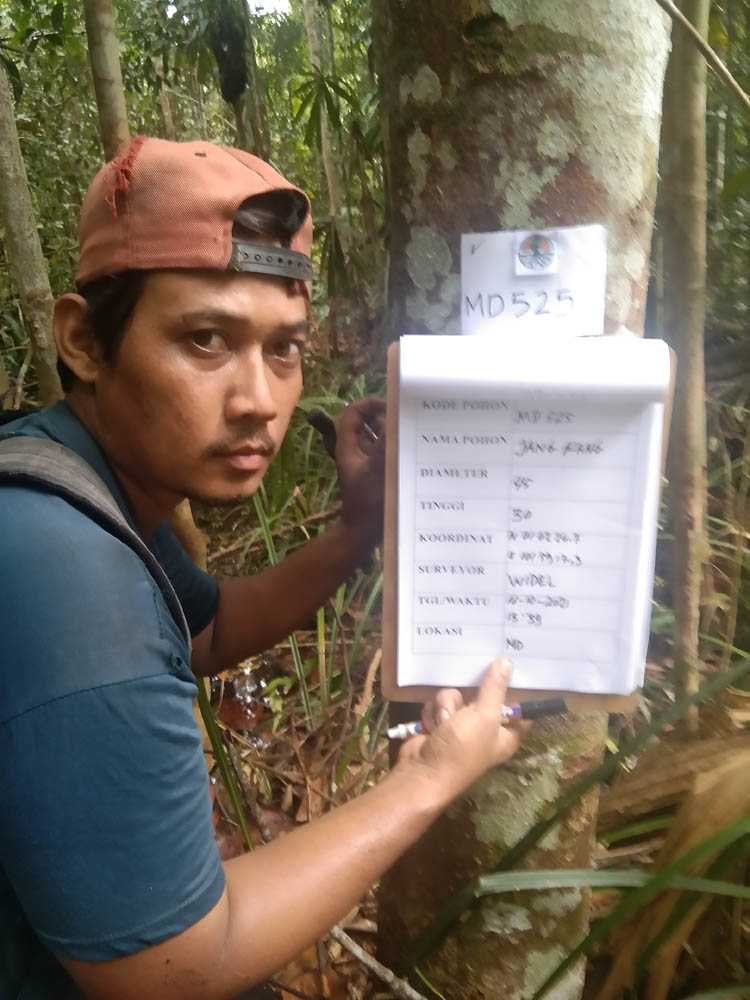 MD525
KODE POHON MD 525
NAMA POHON JANG KANG
DIAMETER 45
TINGGI 30
KOORDINAT
SURVEYOR WIDEL
TGL/WAKTU 10-2021
13:39
LOKASI MD